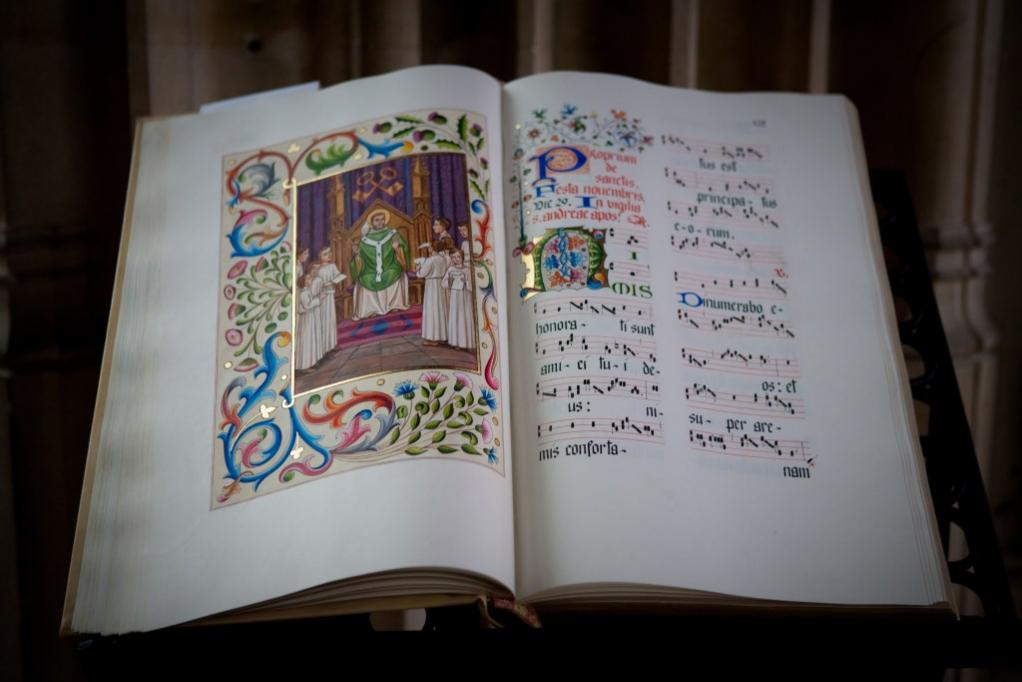 Proprium
de
sanctis.
Festa nouembris.
Die 29. In vigilia
s. andreae apos:
N I
MIS
honora- ti sunt
ami- ci tu- i de-
us: ni-
mis conforta-
tus est
principa- tus
e-o-rum.
V.
Dinumerabo e-
os: et
su- per are-
nam